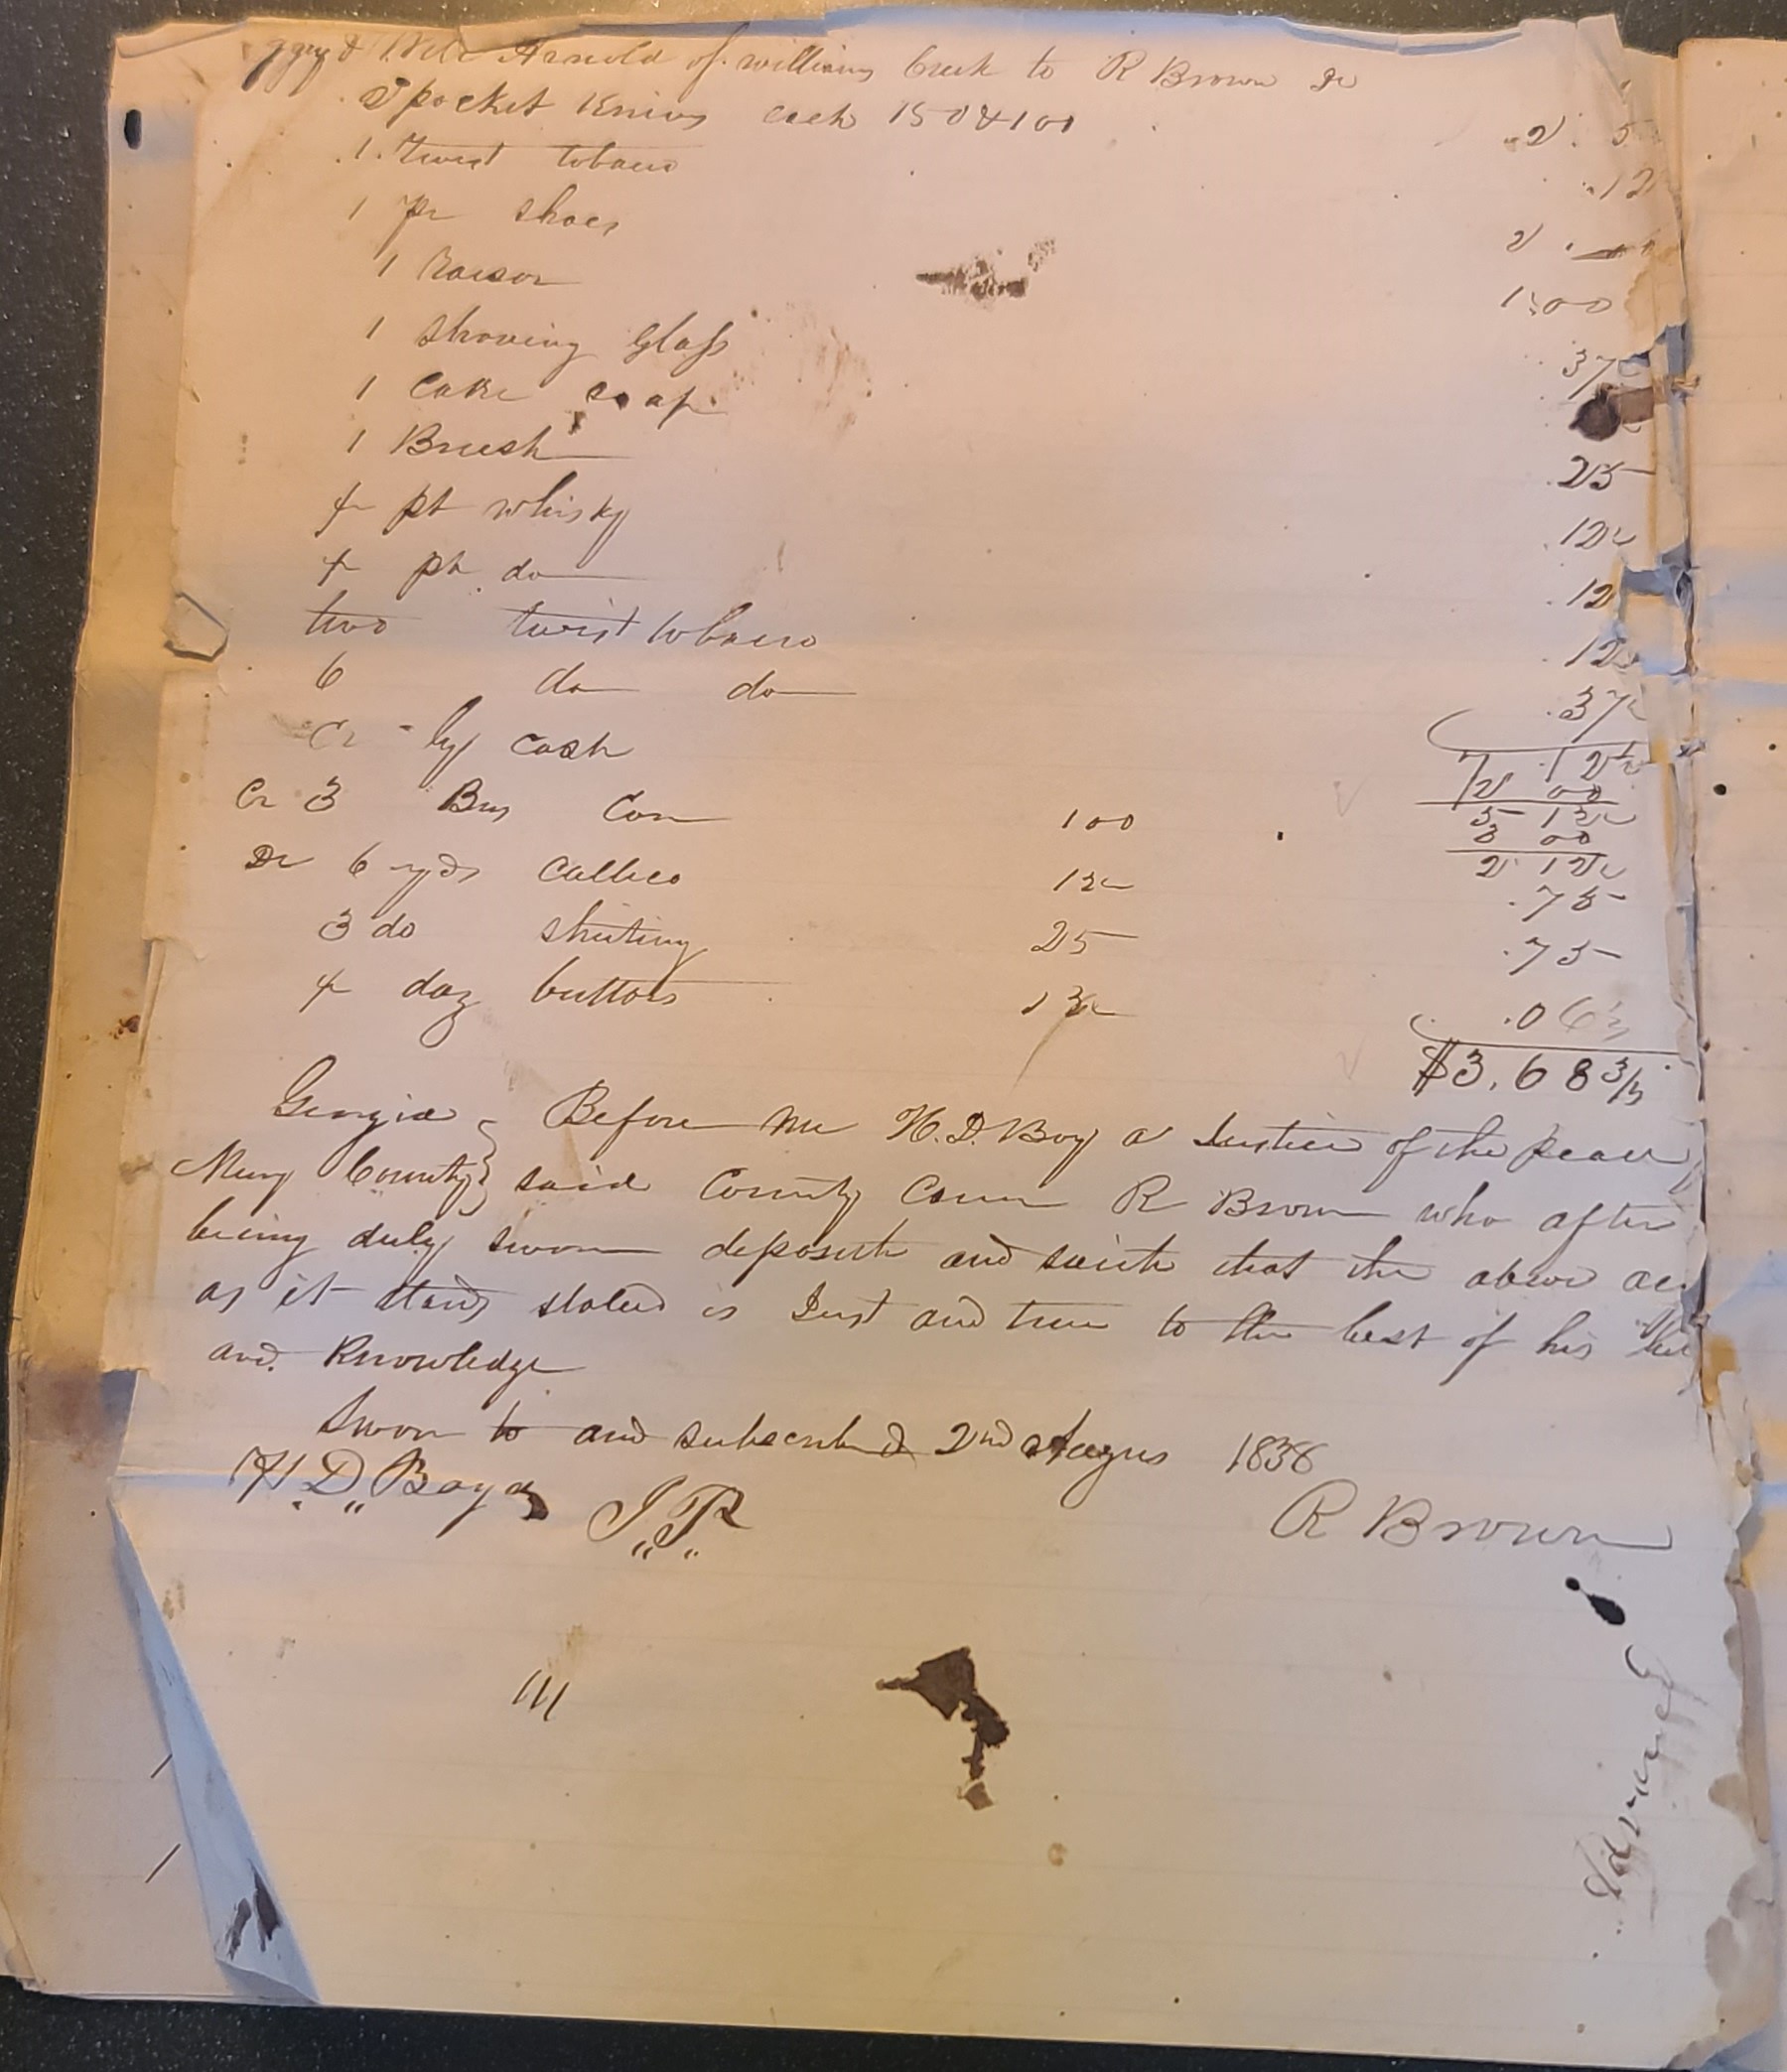 Arnold of williams Creek to R Brown Dr
2 pocket Knives each 150 & 100 2. 5
1 Twist tobacco .12
1 pr shoes 2.
1 Raisor 1.00
1 shaving Glass 37
1 Cake soap
1 Brush .25
pt whisky .12
pt do .12
two twist tobacco .12
6 do do .37
Cr by cash 7.12
2 00
5 12
Cr 3 Bus Corn 100 3 00
2 12
Dr 6 yds Callico 12 .75
3 do shirting 25 .75
doz buttons 12 .06
$3.68 3/
Georgia Before me H.D. Boyd a Justice of the peace
County said County Came R Brown who after
being duly sworn deposeth and saith that the above
as it stands stated is Just and true to the best of his
and Knowledge
Sworn to and subscribed 2nd Augus 1838
H.D. Boyd J.P. R Brown
111